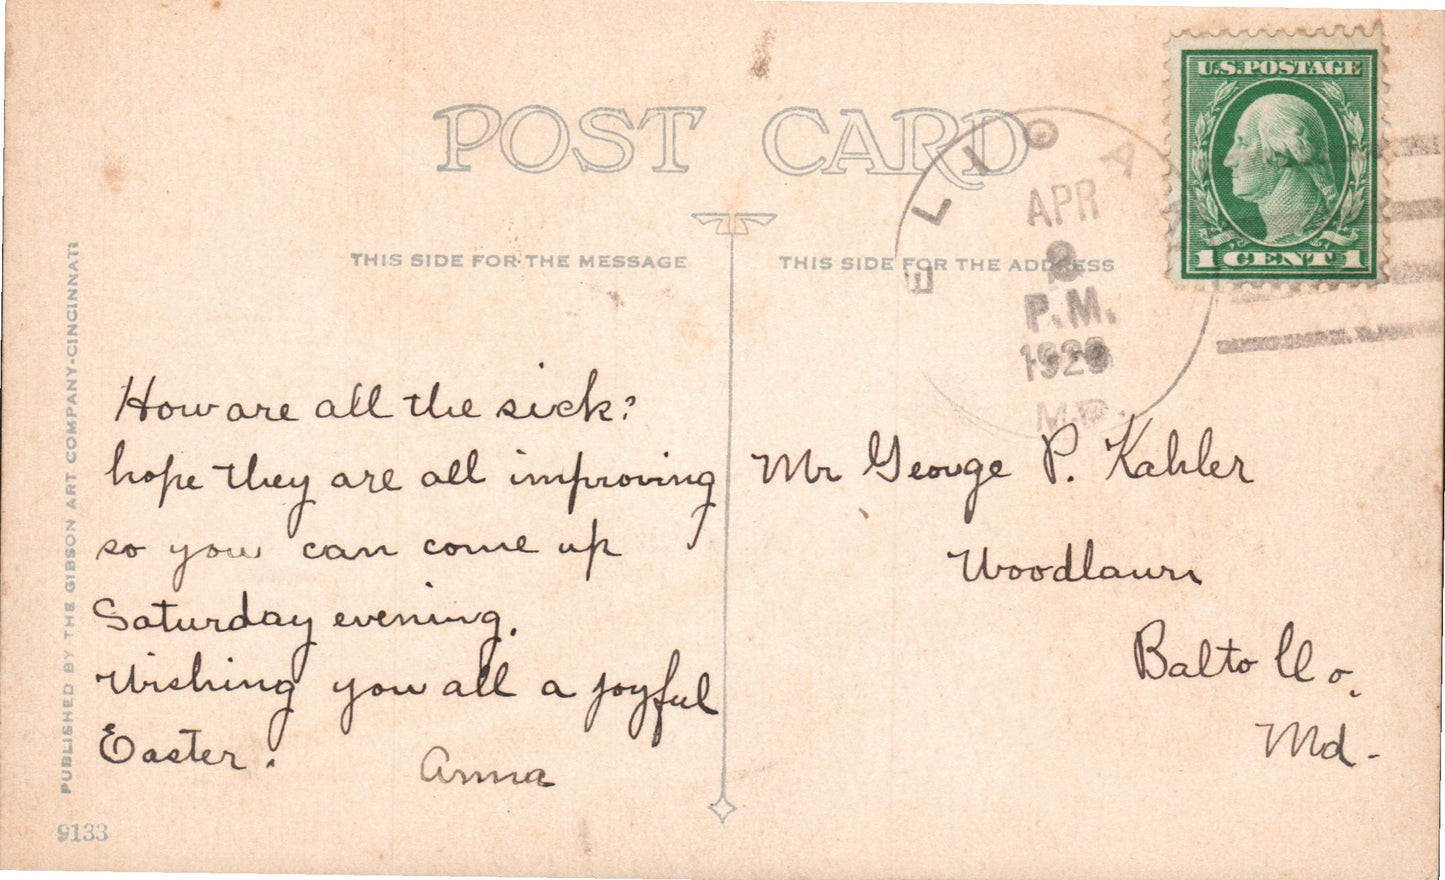 POST CARD
U.S.POSTAGE
1 CENT 1
APR
P.M.
MD.
THIS SIDE FOR THE MESSAGE
THIS SIDE FOR THE ADDRESS
How are all the sick?
hope they are all improving
so you can come up
Saturday evening.
Wishing you all a joyful
Easter.
Anna
Mr George P. Kahler
Woodlawn
Balto Co.
Md.
PUBLISHED BY THE GIBSON ART COMPANY-CINCINNATI
9133